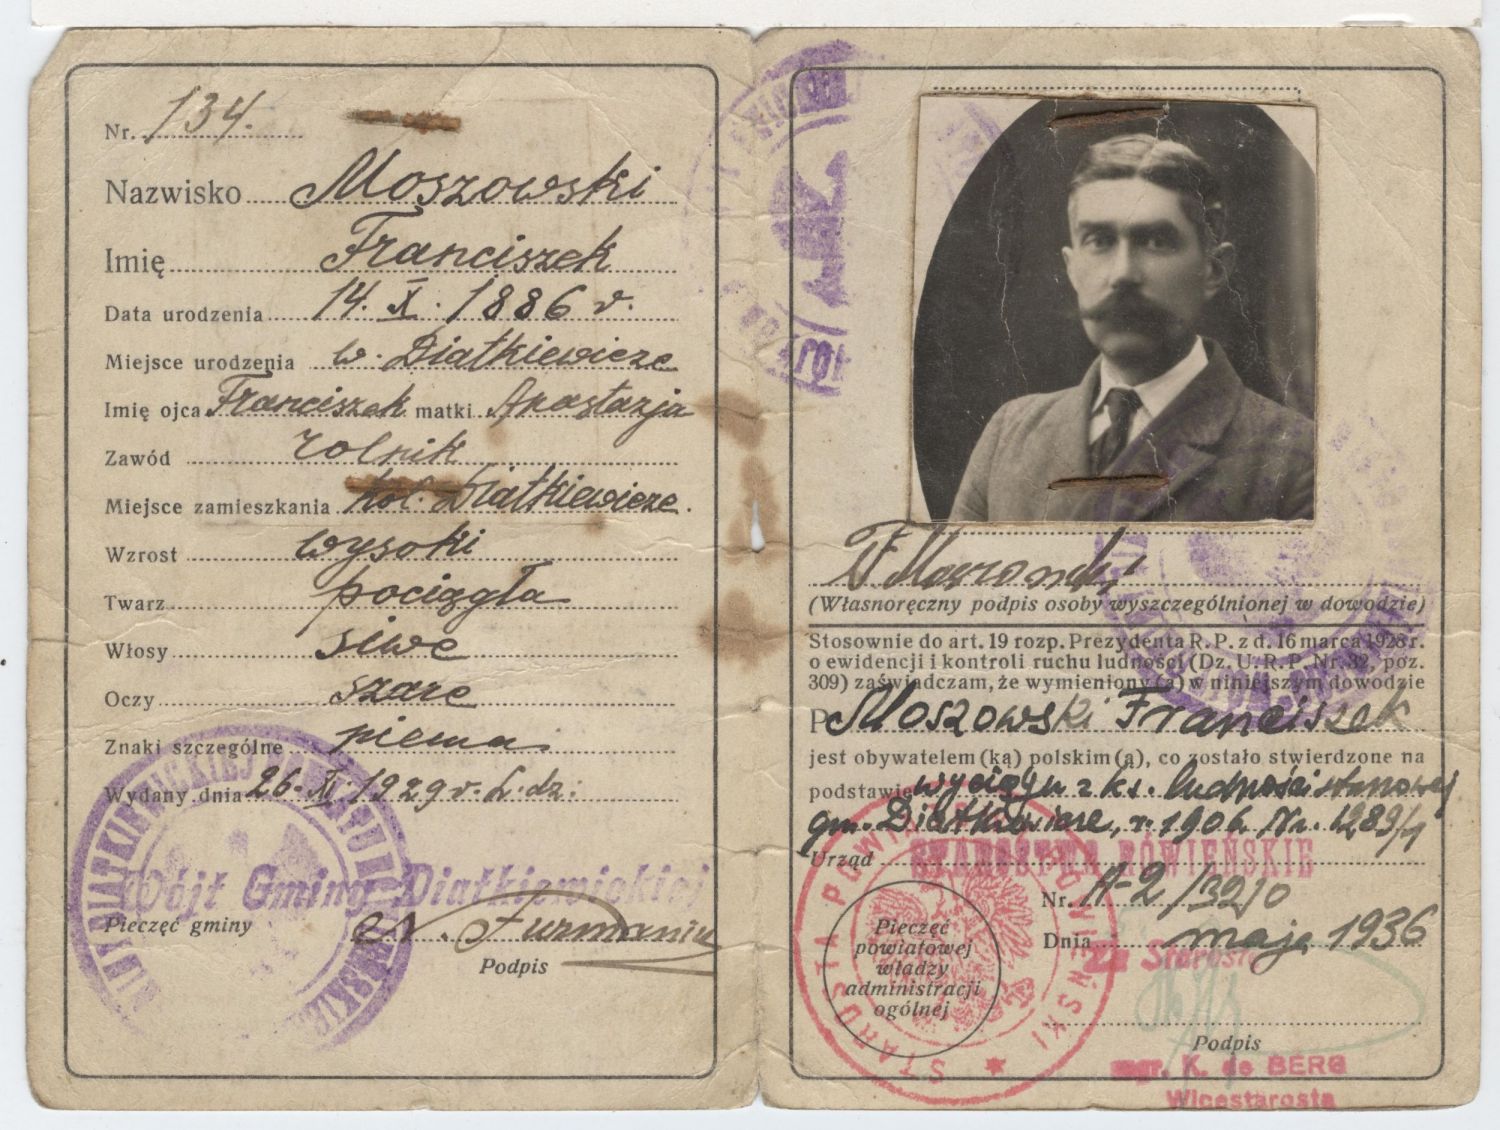 Nr. 134.
Nazwisko Moszowski
Imię Franciszek
Data urodzenia 14. X. 1886 r.
Miejsce urodzenia w. Diatkiewicze
Imię ojca Franciszek matki Anastazja
Zawód rolnik
Miejsce zamieszkania kol. Diatkiewicze.
Wzrost wysoki
Twarz pociągła
Włosy siwe
Oczy szare
Znaki szczególne niema
Wydany dnia 26. XI. 1929 r.
Wójt Gminy Diatkiewickiej
Pieczęć gminy
Podpis
(Własnoręczny podpis osoby wyszczególnionej w dowodzie)
Stosownie do art. 19 rozp. Prezydenta R. P. z d. 16 marca 1928 r.
o ewidencji i kontroli ruchu ludności (Dz. U. R. P. Nr. 32, poz.
309) zaświadczam, że wymieniony (a) w niniejszym dowodzie
P. Moszowski Franciszek
jest obywatelem (ką) polskim (ą), co zostało stwierdzone na
podstawie wyciągu z ks. ludności stanowej
gm. Diatkiewicze, r. 1906 Nr. 1289/1
Urząd STAROSTWO RÓWIEŃSKIE
Nr. A-2/32/0
Dnia maja 1936
Za Starostę
Pieczęć
powiatowej
władzy
administracji
ogólnej
STAROSTA POWIATOWY RÓWIEŃSKI
Podpis
mgr. K. de BERG
Wicestarosta